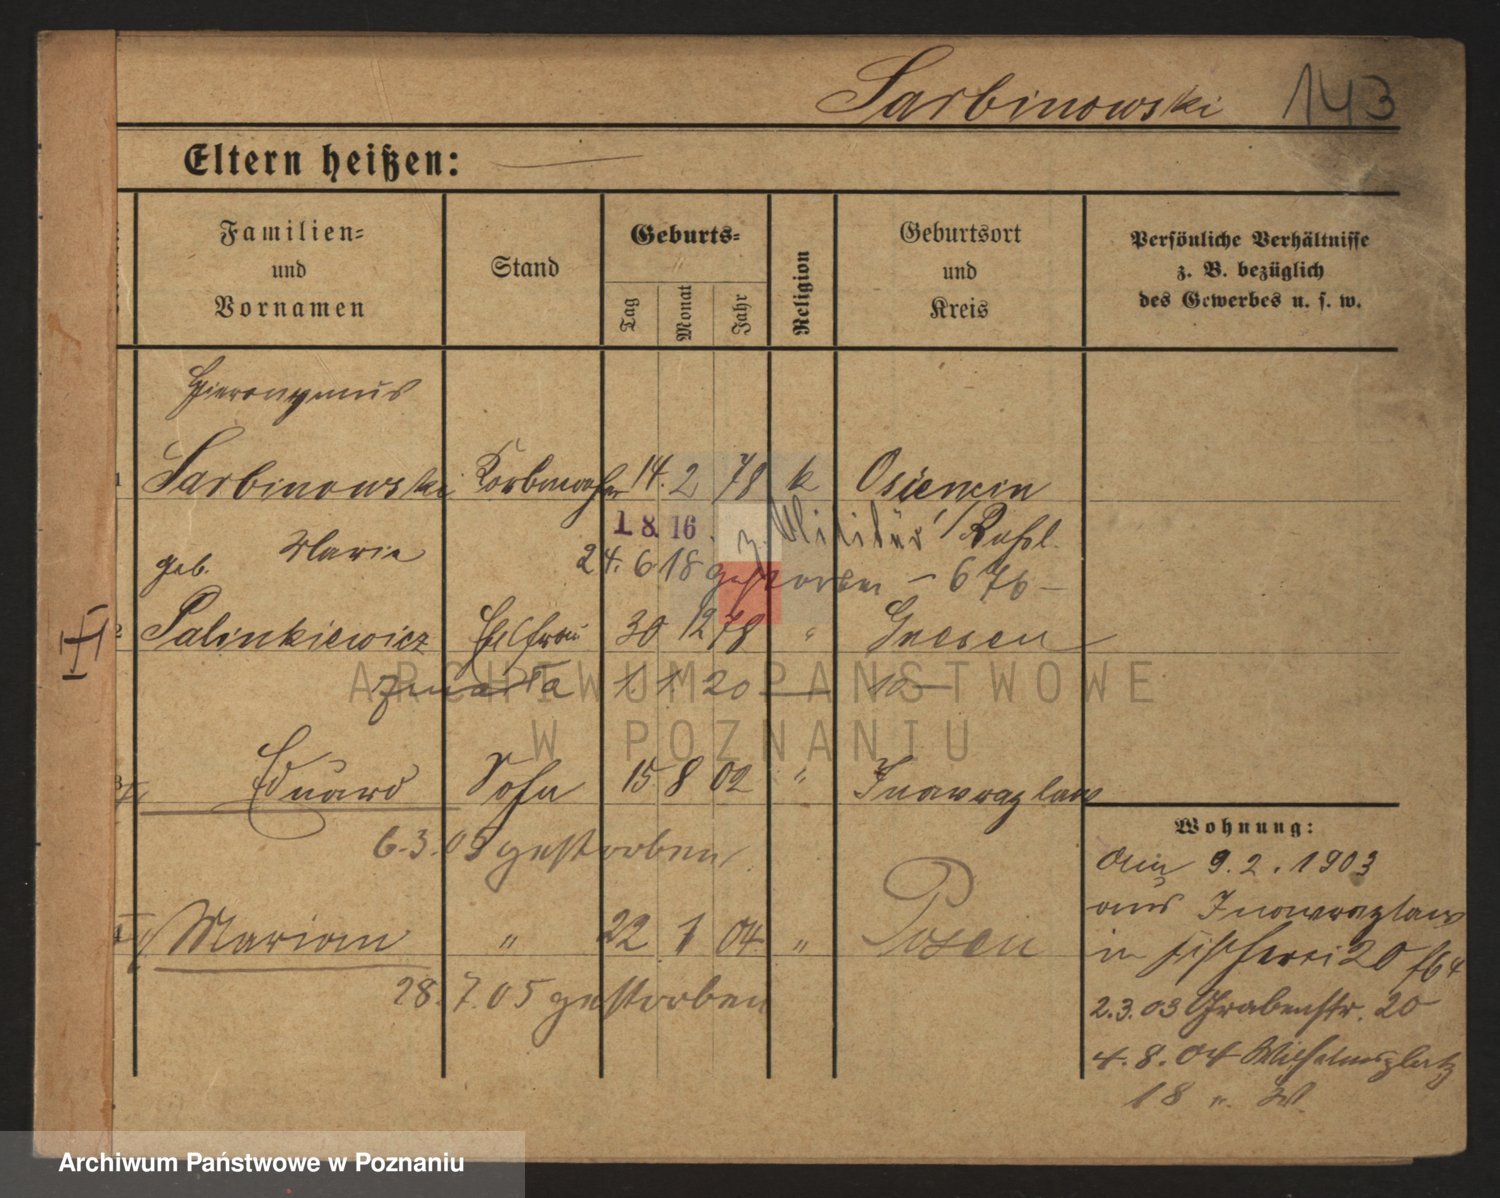 Sarbinowski 143
Eltern heißen: —
Familien=
und
Vornamen
Stand
Geburts=
Tag
Monat
Jahr
Religion
Geburtsort
und
Kreis
Persönliche Verhältnisse
z. B. bezüglich
des Gewerbes u. s. w.
Hieronymus
1 Sarbinowski Korbmacher 14. 2 78 k Osiencin
1. 8. 16. z. Militär
Marie 24. 6 18 gestorben – 676 –
geb.
2 Palinkiewicz Ehefrau 30 12 78 " Gnesen
zmarła 1. 1. 20
3 Eduard Sohn 15 8 02 " Inowrazlaw
6.3.05 gestorben
4 Marian " 22 1 04 " Posen
28. 7. 05 gestorben
III
Wohnung:
Am 9. 2. 1903
aus Inowrazlaw
in Fischerei 20
2.3.03 Grabenstr. 20
4. 8. 04 Wilhelmsplatz
18
ARCHIWUM PAŃSTWOWE
W POZNANIU
Archiwum Państwowe w Poznaniu